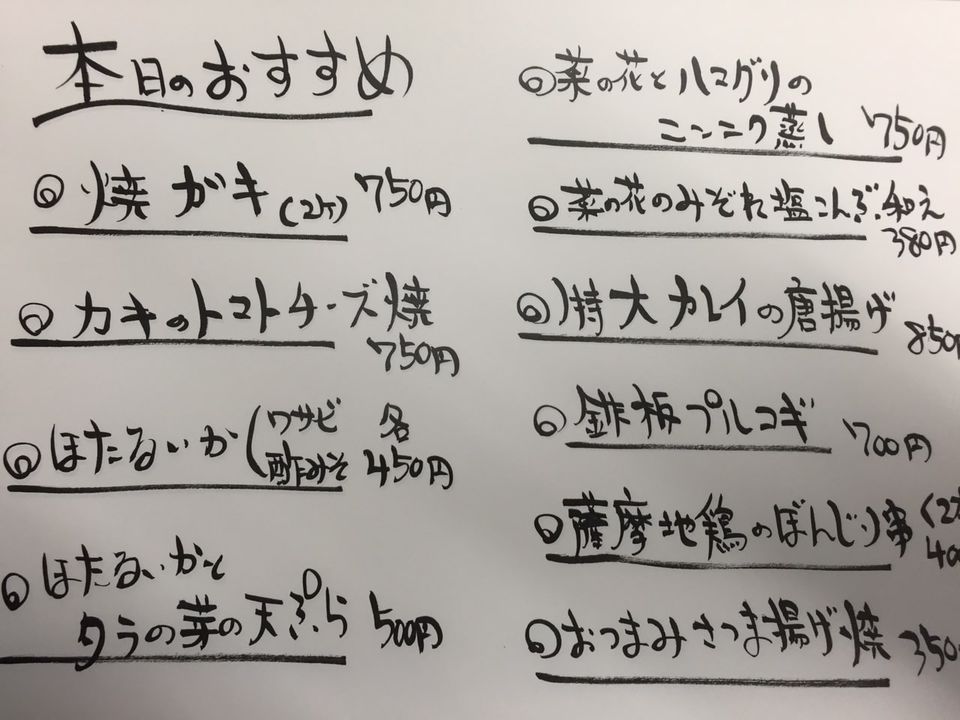 本日のおすすめ
◎焼ガキ(2ケ) 750円
◎カキのトマトチーズ焼
750円
◎ほたるいか(ワサビ 各
酢みそ 450円
◎ほたるいかと
タラの芽の天ぷら 500円
◎菜の花とハマグリの
ニンニク蒸し 750円
◎菜の花のみぞれ塩こんぶ和え
380円
◎特大カレイの唐揚げ
850円
◎鉄板プルコギ 700円
◎薩摩地鶏のぼんじり串(2本
400
◎おつまみさつま揚げ焼 350